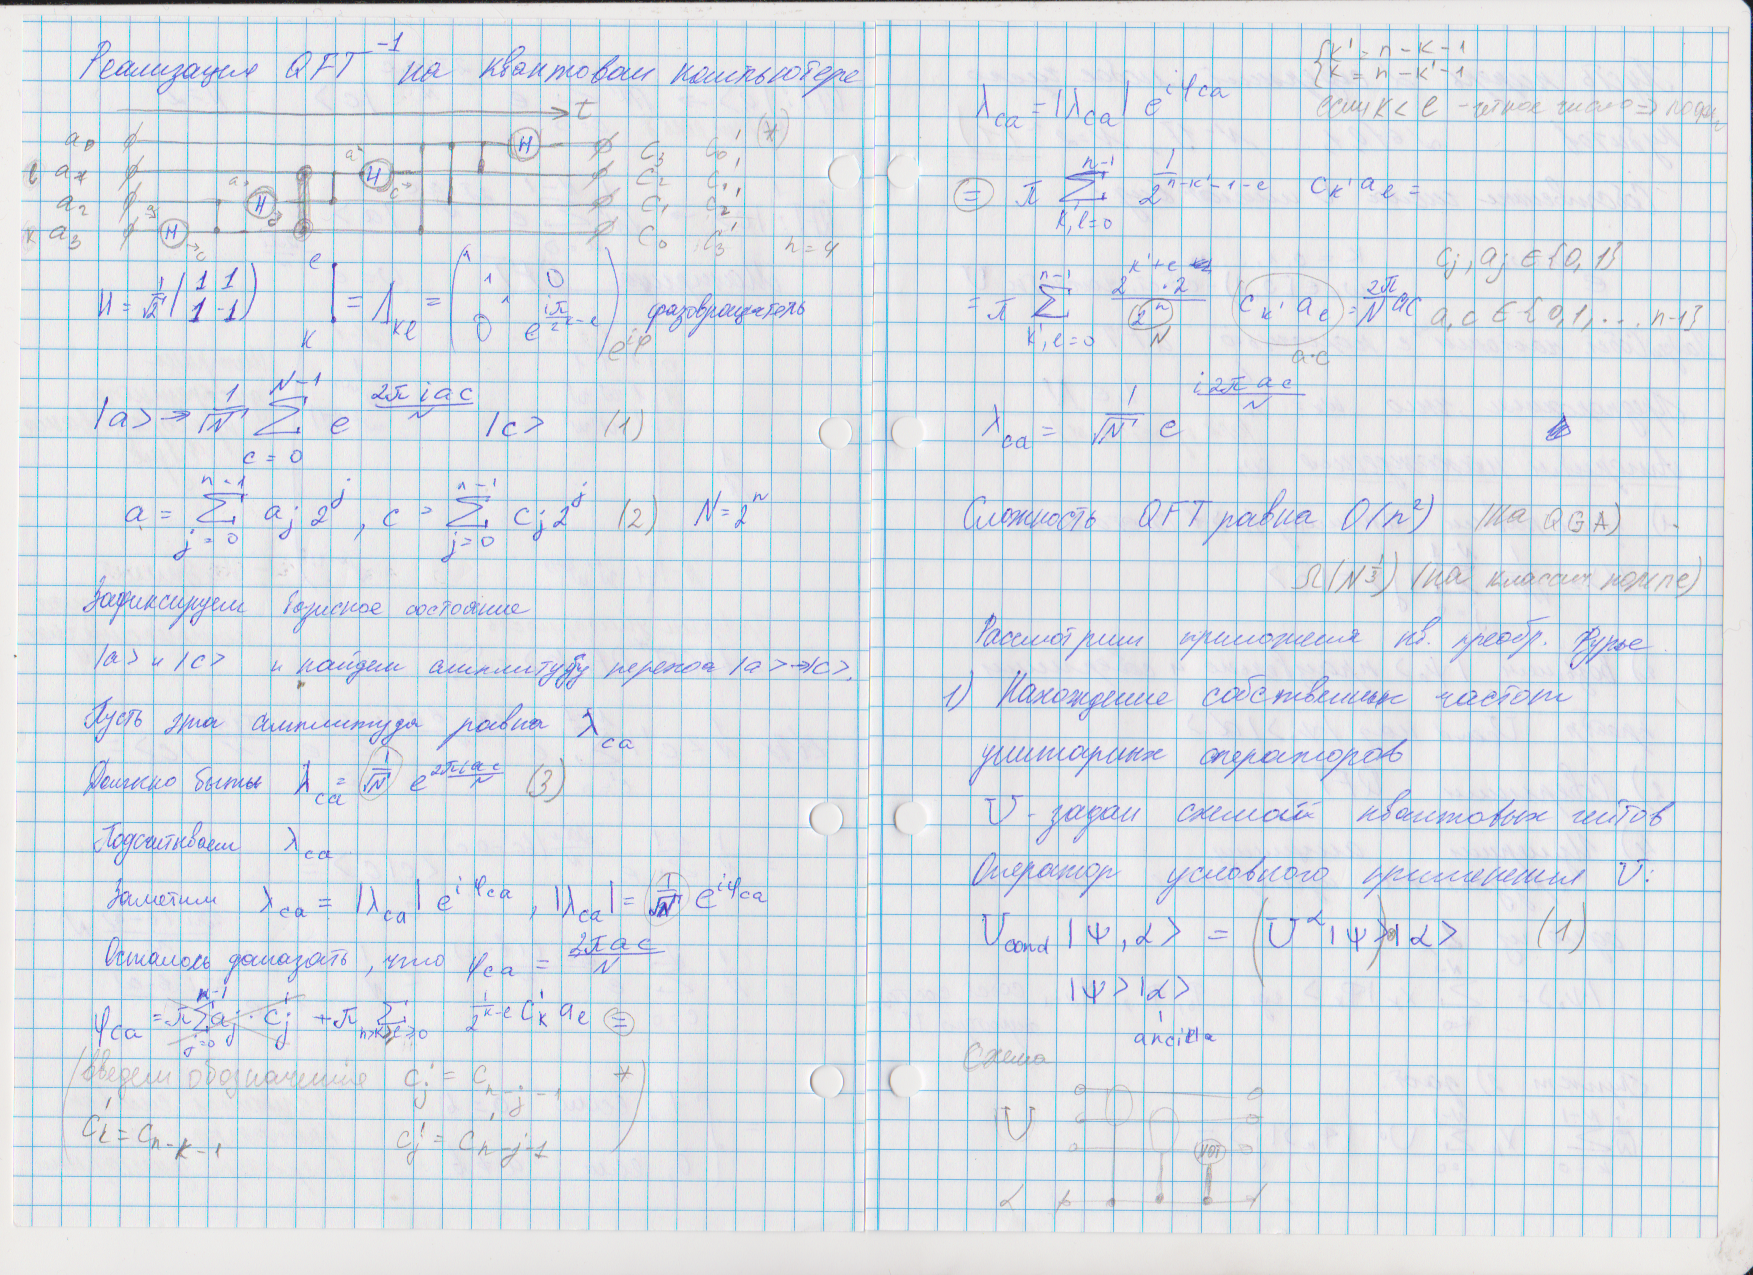 Реализация QFT⁻¹ на квантовом компьютере
t
a₀ H c₃ c₀' (*)
l a₁ H c₂ c₁'
a₂ H c₁ c₂'
k a₃ H c₀ c₃' n = 4
H = 1/√2 (1 1 / 1 -1) l k = Λₖₗ = (1 1 0 / 1 / 0 e^(iπ/2^(k-l))) e^(iφ) фазовращатель
|a> → 1/√N Σ_(c=0)^(N-1) e^(2πiac/N) |c> (1)
a = Σ_(j=0)^(n-1) aⱼ 2^j , c = Σ_(j=0)^(n-1) cⱼ 2^j (2) N = 2ⁿ
Зафиксируем базисное состояние
|a> и |c> и найдем амплитуду перехода |a> → |c>.
Пусть эта амплитуда равна λ_ca
Должно быть λ_ca = 1/√N e^(2πiac/N) (3)
Подсчитываем λ_ca
Заметим λ_ca = |λ_ca| e^(iφ_ca) , |λ_ca| = 1/√N e^(iφ_ca)
Осталось доказать, что φ_ca = 2πac/N
φ_ca = π Σ_(j=0)^(n-1) aⱼ · cⱼ' + π Σ_(n>k>l≥0) 1/2^(k-l) cₖ' aₗ =
(введем обозначения cⱼ' = c_(n-j-1) *
cₖ' = c_(n-k-1) cⱼ' = c_(n-j-1) )
{ k' = n - k - 1
{ k = n - k' - 1
λ_ca = |λ_ca| e^(iφ_ca)
если k < l - четное число =>
= π Σ_(k',l=0)^(n-1) 1/2^(n-k'-1-l) c_k' aₗ =
cⱼ, aⱼ ∈ {0, 1}
= π Σ_(k',l=0)^(n-1) 2^(k'+l) · 2 / 2ⁿ c_k' aₗ = 2π/N ac a, c ∈ {0, 1, ... n-1}
N a·c
λ_ca = 1/√N e^(i2πac/N)
Сложность QFT равна O(n²) (на QGA)
Ω(N^(1/3)) (на классич компе)
Рассмотрим приложения кв. преобр. Фурье.
1) Нахождение собственных частот
унитарных операторов
U - задан схемой квантовых гейтов
Оператор условного применения U:
U_cond |Ψ, α> = (U^α |Ψ>) |α> (1)
|Ψ> |α>
ancilla
Схема
U
NOT
α